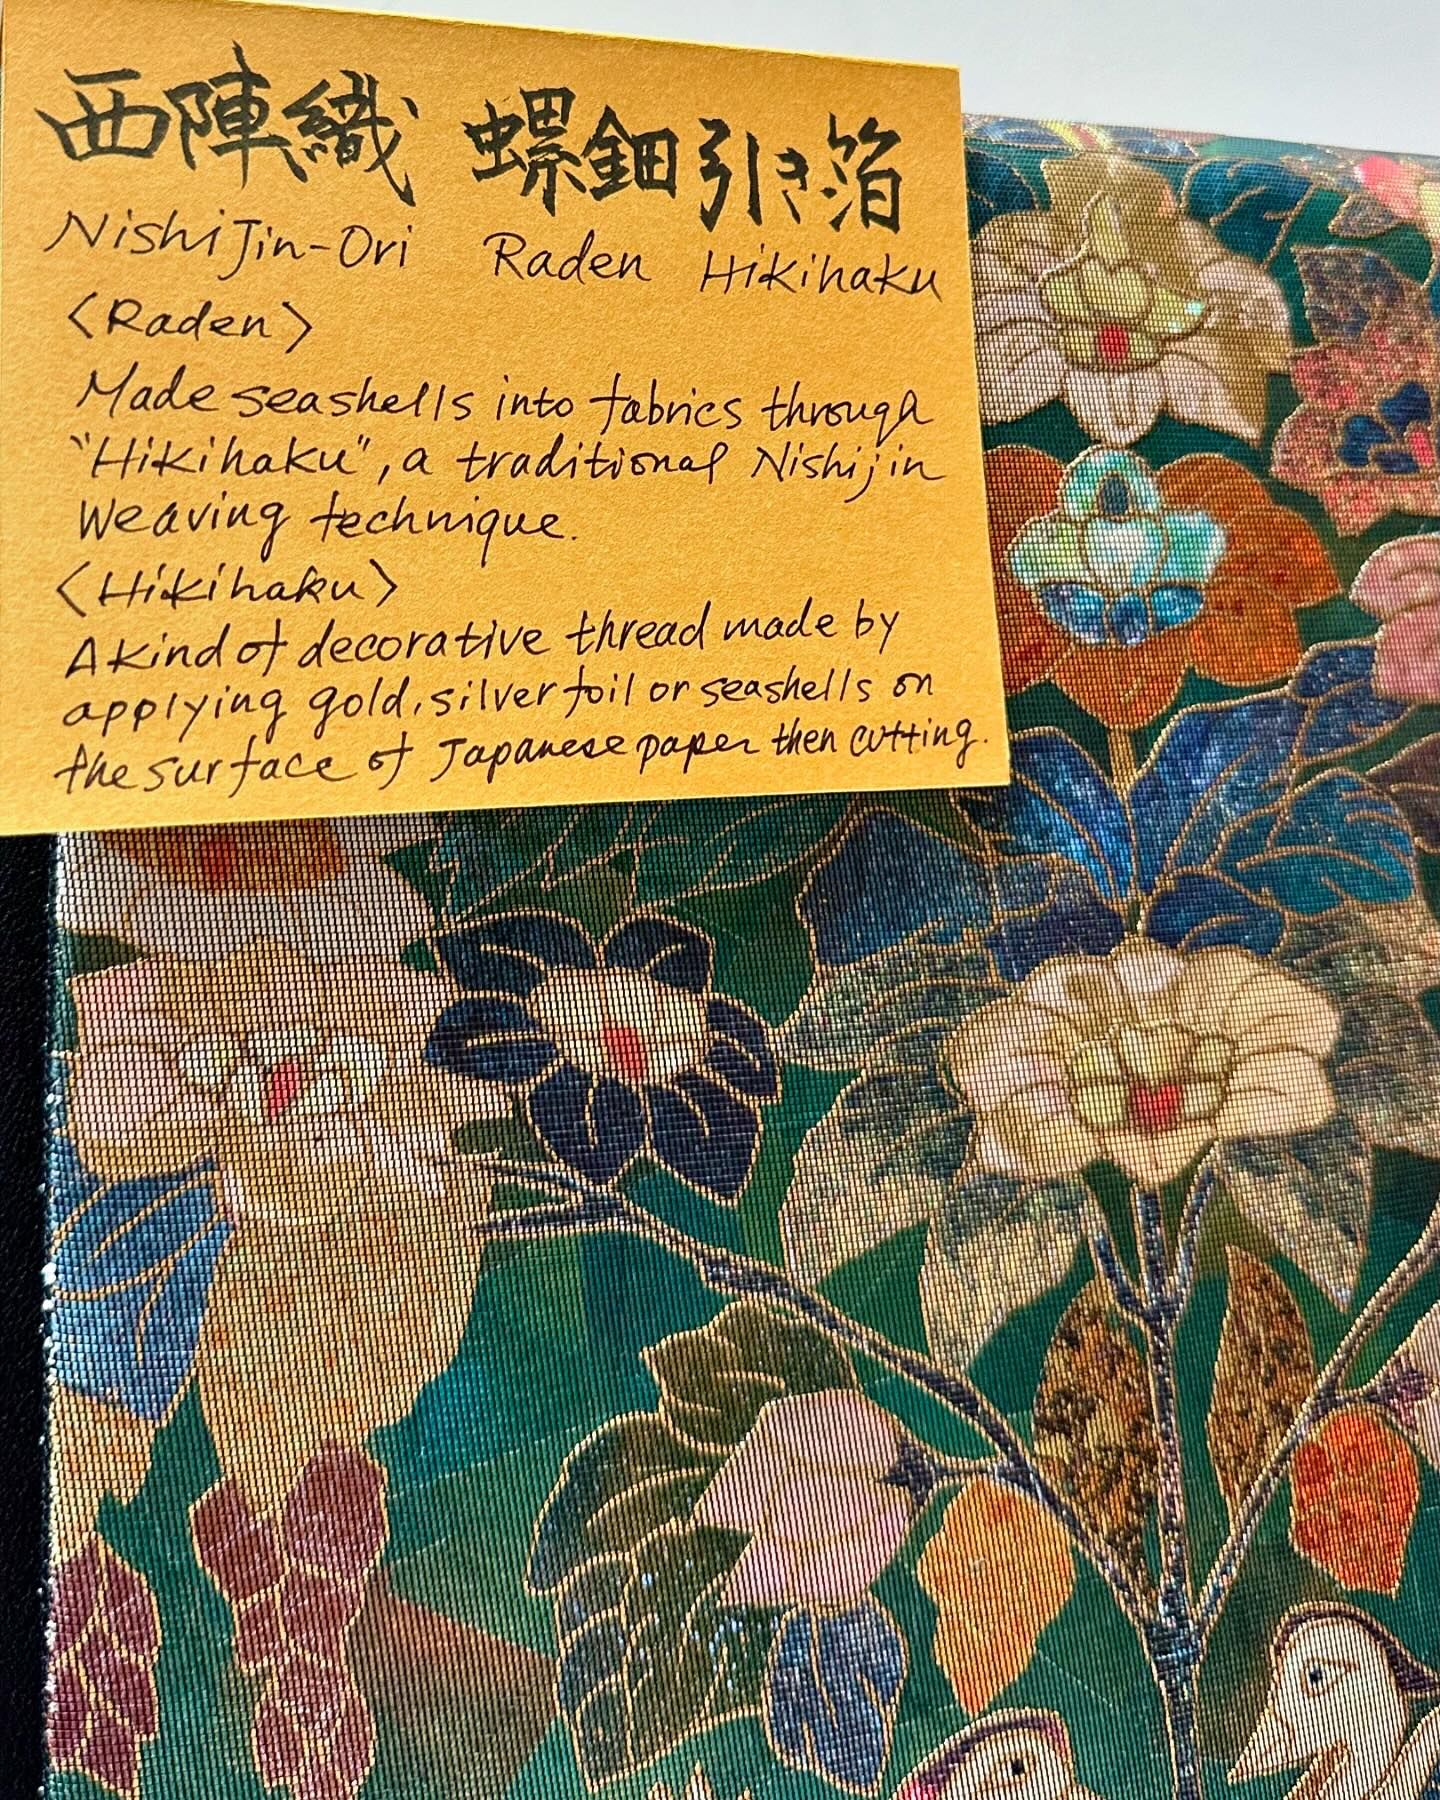 西陣織 螺鈿引き箔
NishiJin-Ori Raden Hikihaku
〈Raden〉
Made seashells into fabrics through
"Hikihaku", a traditional Nishijin
Weaving technique.
〈Hikihaku〉
A kind of decorative thread made by
applying gold, silver foil or seashells on
the surface of Japanese paper then cutting.